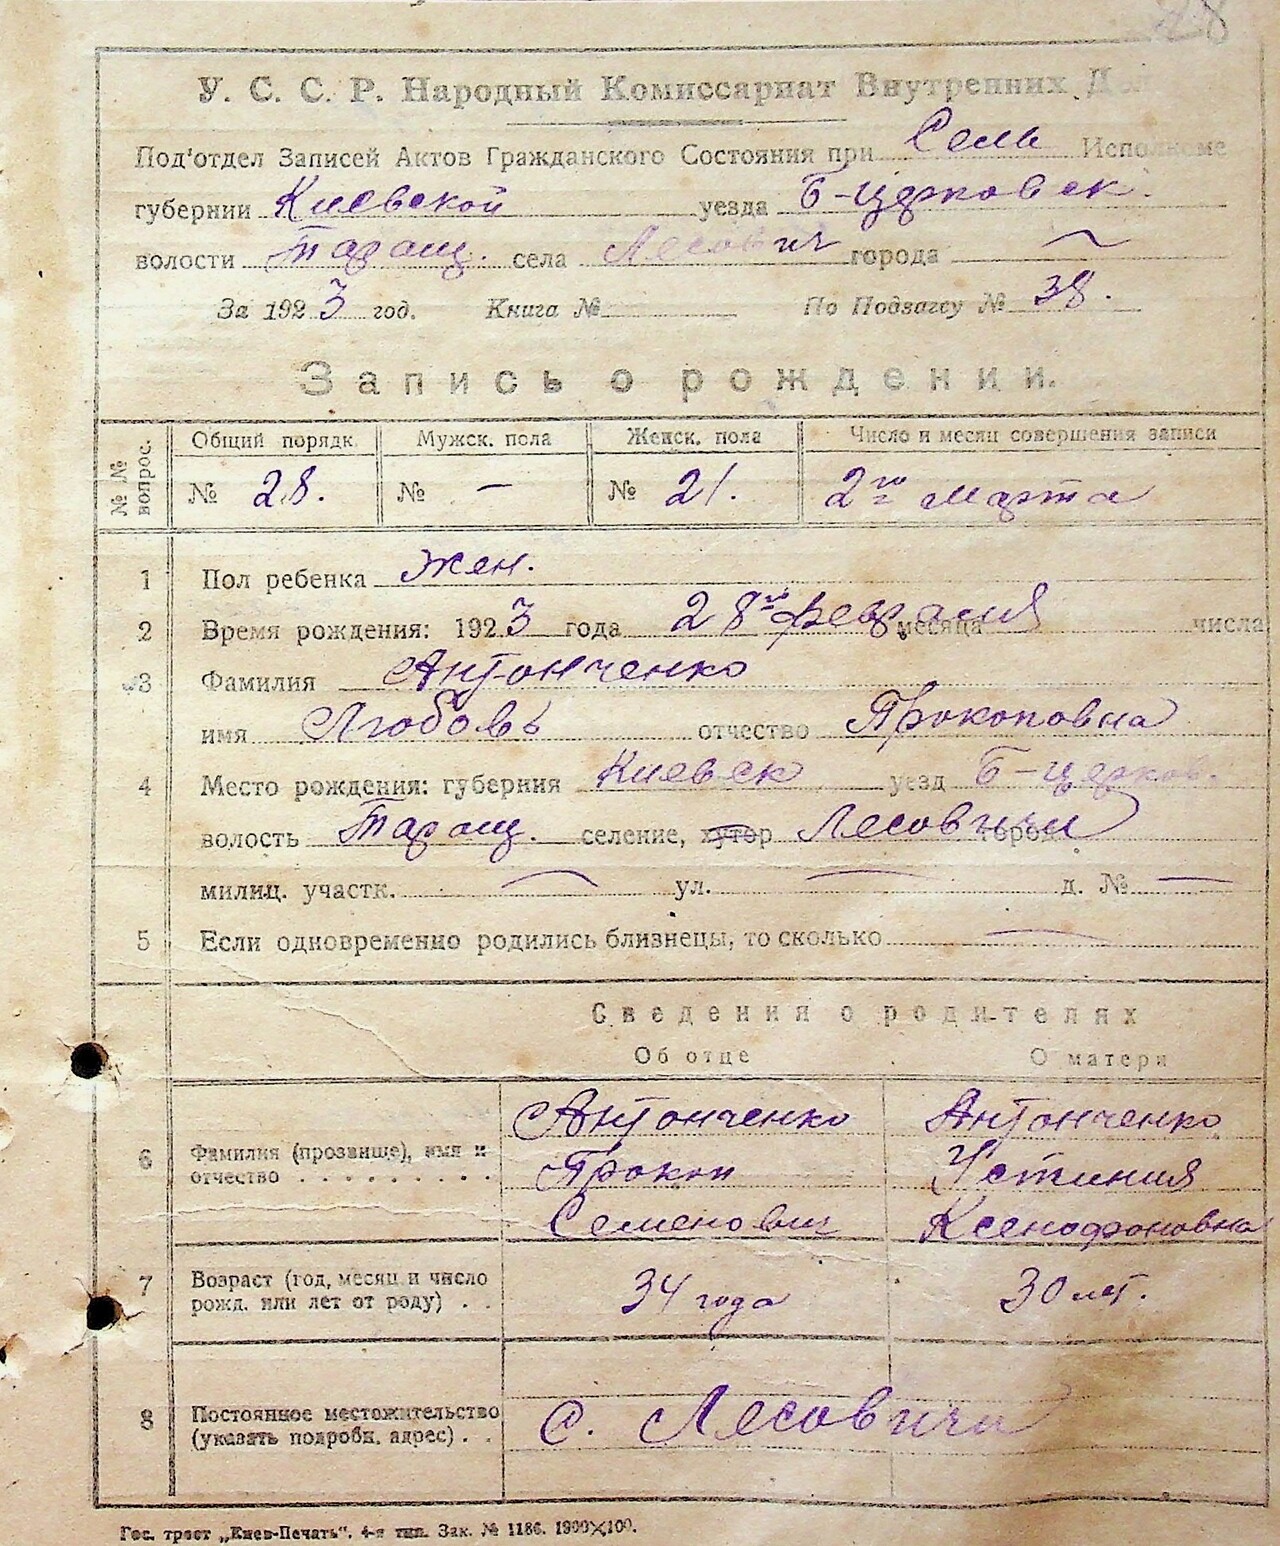 У. С. С. Р. Народный Комиссариат Внутренних
Под'отдел Записей Актов Гражданского Состояния при Сель Исполкоме
губернии Киевской уезда Б-церковск.
волости Таращ. села Лесович города
За 1923 год. Книга № По Подзагсу № 38.
Запись о рождении.
№ № вопрос. Общий порядк Мужск. пола Женск. пола Число и месяц совершения записи
№ 28. № — № 21. 2го марта
1 Пол ребенка жен.
2 Время рождения: 1923 года 28го февраля месяца числа
3 Фамилия Антонченко
имя Любовь отчество Прокоповна
4 Место рождения: губерния Киевск уезд Б-церков.
волость Таращ. селение, хутор Лесовичи город
милиц. участк. — ул. — д. № —
5 Если одновременно родились близнецы, то сколько —
Сведения о родителях
Об отце О матери
6 Фамилия (прозвище), имя и отчество . . . . . . . . . Антонченко Прокоп Семенович Антонченко Устиния Ксенофоновна
7 Возраст (год, месяц и число рожд. или лет от роду) . . 34 года 30 лет.
8 Постоянное местожительство (указать подробн. адрес) . . с. Лесовичи
Гос. трест „Киев-Печать". 4-я тип. Зак. № 1186. 1900×100.